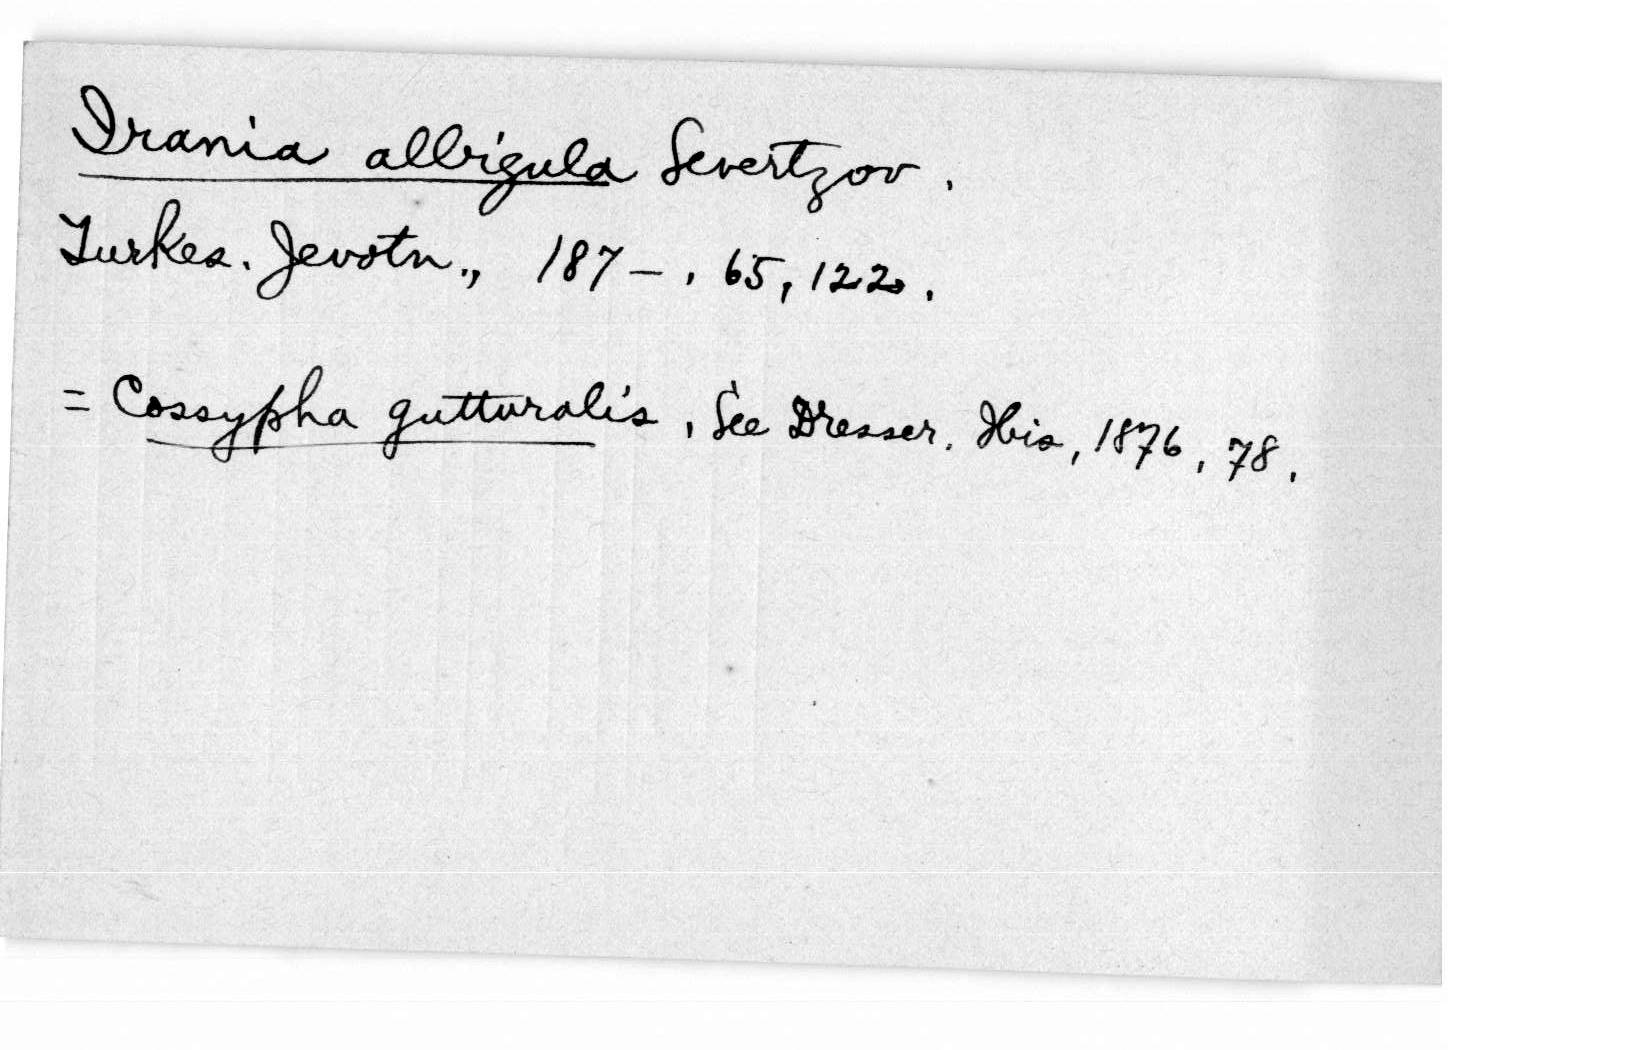 Irania albigula Severtzov.
Turkes. Jevotn., 187-, 65, 122.
= Cossypha gutturalis, See Dresser. Ibis, 1876, 78.